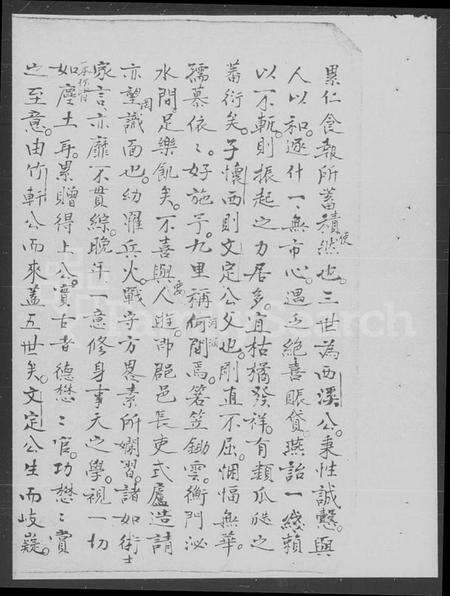 累仁食報所蓄積使然也。三世為西溪公。秉性誠慤。與
人以和。逐什一、無市心。遇乏絕喜賑貸。燕詒一綫賴
以不斬。則振起之力居多。宜枯橘發祥。有類瓜瓞之
蕃衍矣。子懷西則文定公父也。剛直不屈。悃愊無華。
孺慕依依。好施予。九里稱何間焉。箬笠鋤雲。衡門泌
水間。足樂飢矣。不喜與人遊。即郡邑長吏式廬造請
亦罔望識面也。幼罹兵火。戰守方畧素所嫻習。諸如術士
家言亦靡不貫綜。晚年一意修身事天之學。視一切
如塵土耳。累贈得上公。實古者德懋懋官。功懋懋賞
之至意。由竹軒公而來蓋五世矣。文定公生而岐嶷。